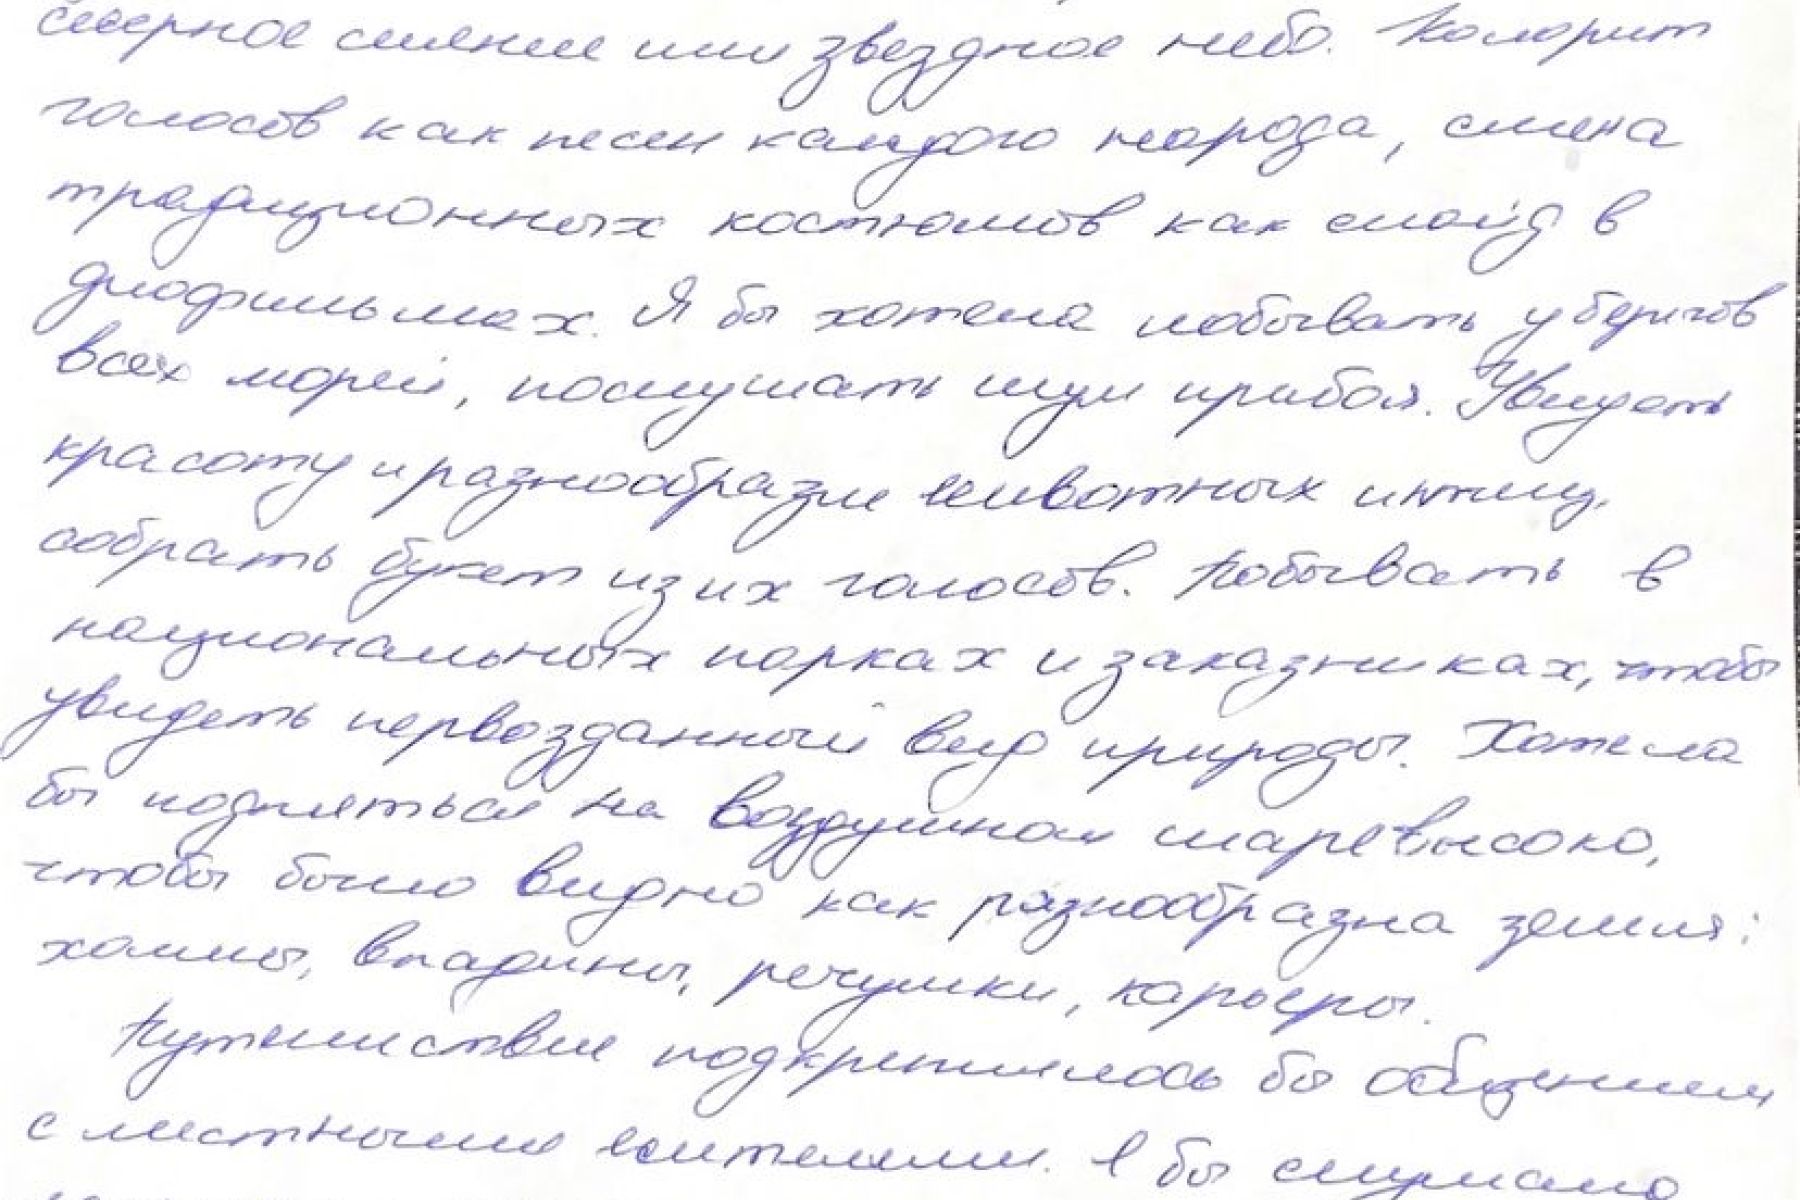 северное сияние или звездное небо. Колорит
голосов как песен каждого народа, смена
традиционных костюмов как слайд в
диафильмах. Я бы хотела побывать у берегов
всех морей, послушать шум прибоя. Увидеть
красоту и разнообразие животных и птиц,
собрать букет из их голосов. Побывать в
национальных парках и заказниках, чтобы
увидеть первозданный вид природы. Хотела
бы подняться на воздушном шаре высоко,
чтобы было видно как разнообразна земля:
холмы, впадины, речушки, карьеры.
Путешествие подкрепилось бы общением
с местными жителями. Я бы слушала